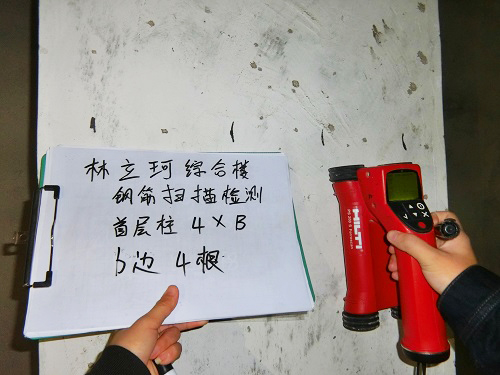 林立珂综合楼
钢筋扫描检测
首层柱 4×B
b边 4根
HILTI